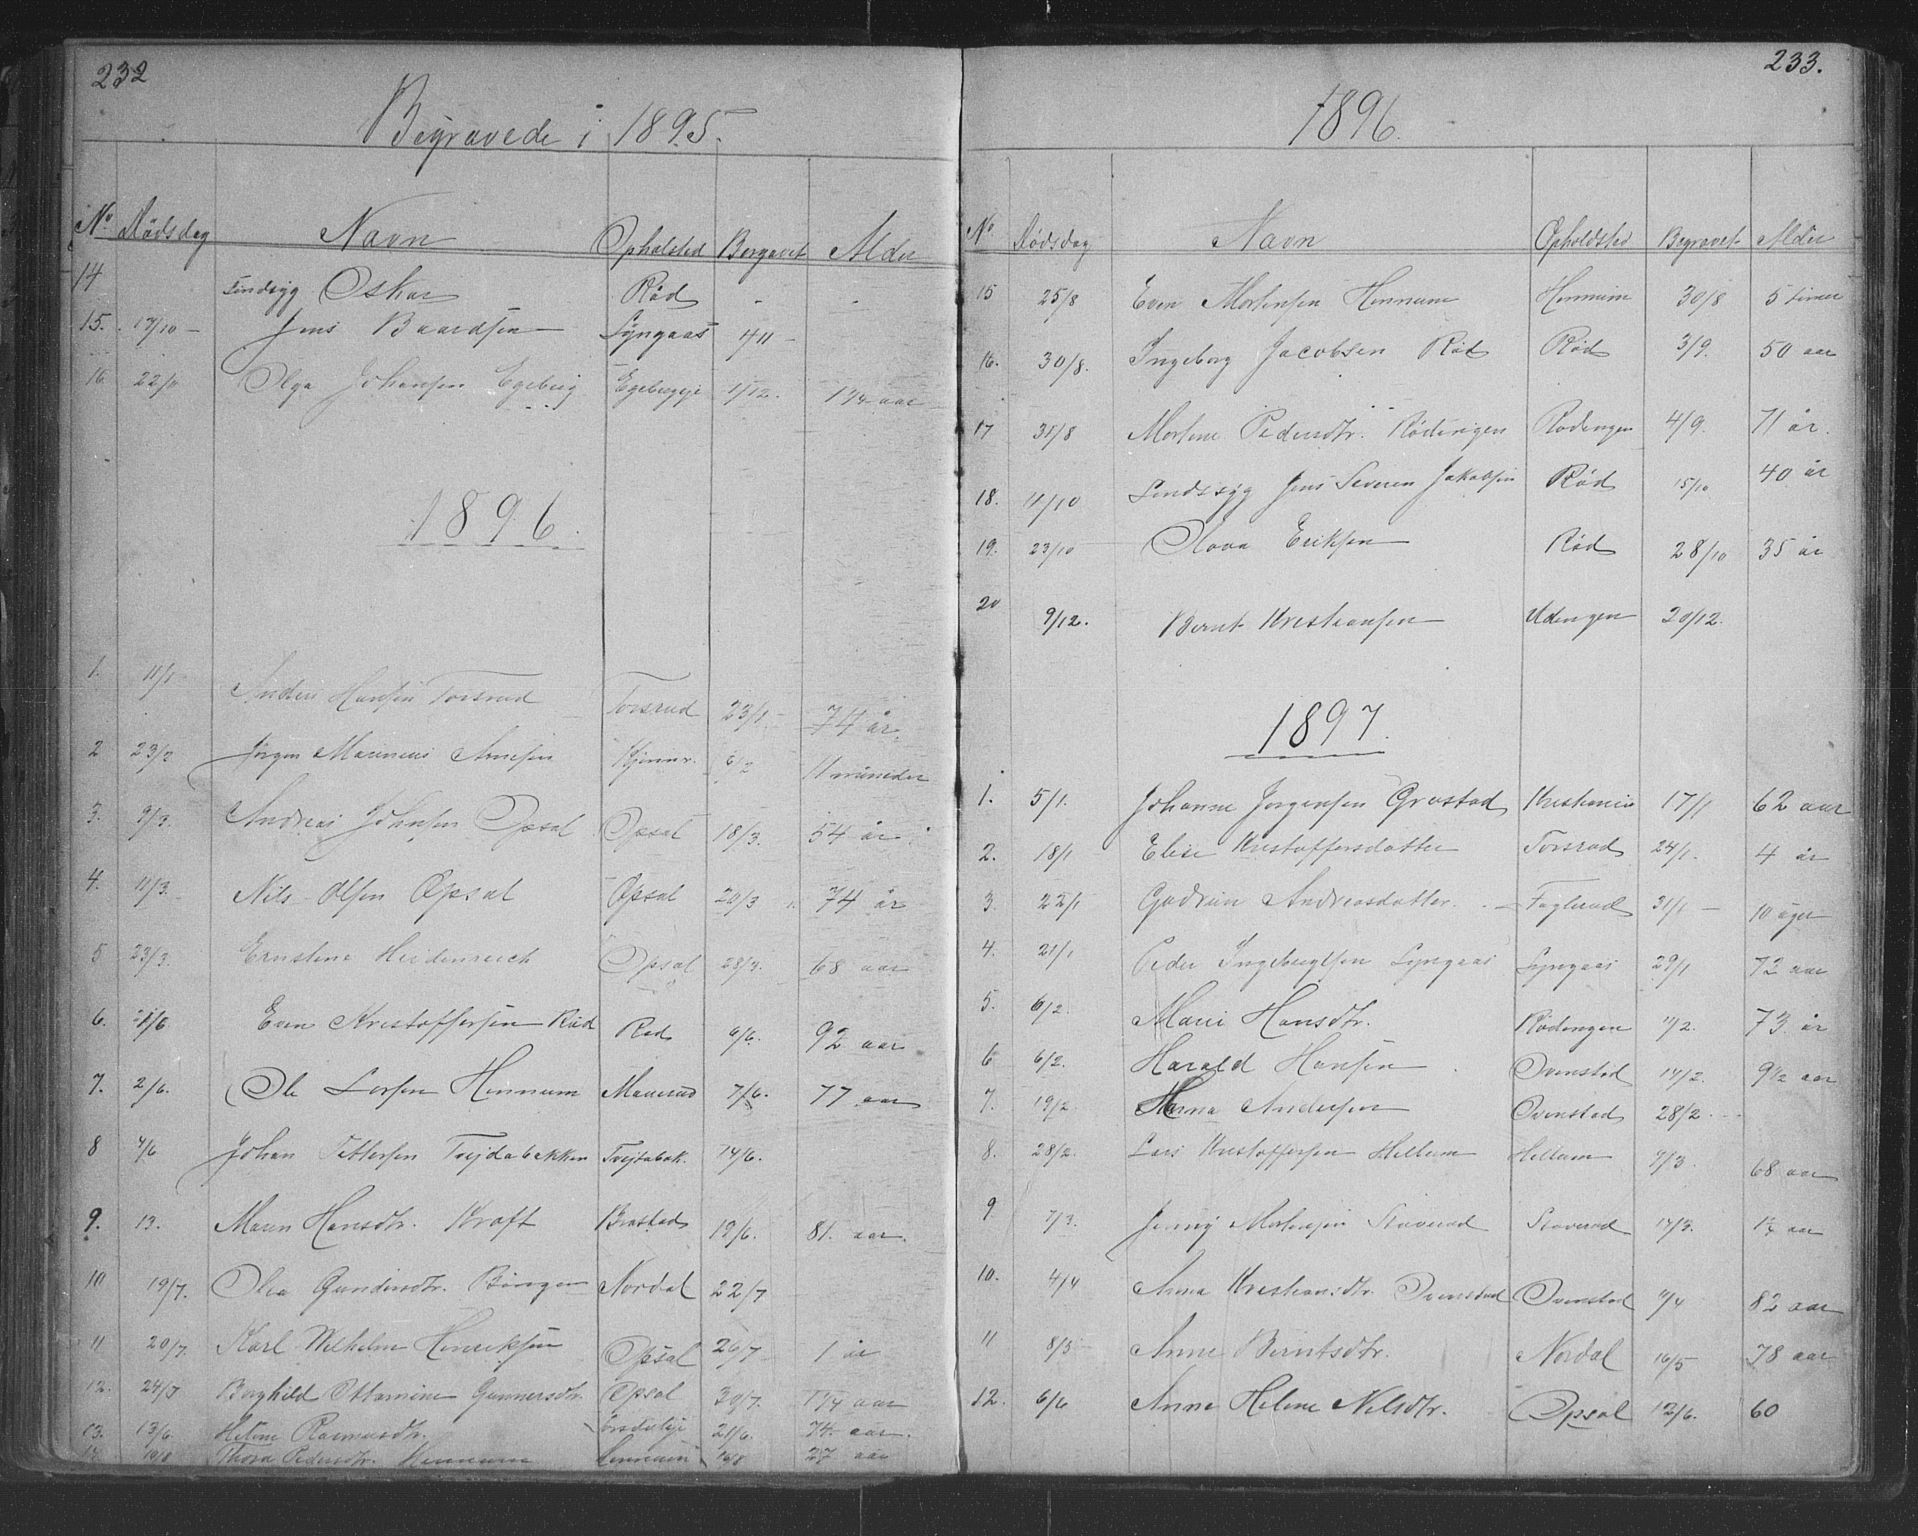 232
Begravede i 1895.
No Dødsdag Navn Opholsted Begravet Alder
14 Sindsyg Oskar Rød - -
15. 17/10 - Jens Baardsen Lyngaas 4/11 -
16 22/11 Olga Johansen Egeberg Egebergeje 1/12. 1 1/4 aar
1896.
1. 11/1 Anders Hansen Torsrud Torsrud 23/1 - 74 år.
2 23/2 Jørgen Marenius Arnesen Kjennr. 6/2 11 måneder
3. 9/3. Andreas Johnsen Opsal Opsal 18/3. 54 år
4. 11/3. Nils Olsen Opsal Opsal 20/3 74 år
5 23/3. Ernstine Heidenreich Opsal 28/3. 68 aar
6. 1/6 Even Kristoffersen Rød Rød 6/6. 92 aar
7. 2/6. Ole Larsen Hennum Maurud 7/6. 77 aar
8 4/6 Johan Pettersen Tvejdabakken Tvejtabak. 14/6.
9. 13. Maren Hansdtr. Kraft Brastad 19/6. 81. aar.
10 19/7. Olea Gundersdtr. Bingen Nordal 22/7
11 20/7. Karl Wilhelm Henriksen Opsal 26/7 1 år
12. 24/7 Borghild Ottomine Gunnersdtr. Opsal 30/7. 1 1/4 aar
13. 13/6. Helene Rasmusdtr. 21/6. 74. aar.
14 10/8 Thora Pedersdtr. Hennum Hennum 16/8 27 aar
233.
1896.
No Dødsdag Navn Opholdsted Begravet Alder
15 25/8 Even Mortensen Hennum Hennum 30/8 5 timer
16. 30/8. Ingeborg Jacobsen Rød Rød 3/9. 50 aar
17 31/8 Mortine Pedersdtr. Rødengen Rødengen 4/9. 71 år.
18. 11/10 Sindssyg Jens Severen Jakobsen Rød 15/10 40 år
19. 23/10 Olava Eriksen Rød 28/10 35 år
20 9/12. Bernt Kristiansen Udengen 20/12.
1897.
1. 5/1. Johanne Jørgensen Grøstad Kristiania 17/1 62 aar
2. 18/1 Elise Kristoffersdatter Torsrud 24/1. 4 år
3. 22/1 Gudrun Andreasdatter. Faglerud 31/1 - 10 uger
4. 21/1 Peder Ingebregtsen Lyngaas Lyngaas 29/1 72 aar
5. 6/2. Mari Hansdtr. Rødengen 11/2. 73 år
6 6/2. Harald Hansen Ovenstad 14/2. 9 1/2 aar
7. 19/2. Anna Andersen Ovenstad 28/2.
8. 28/2. Lars Kristoffersen Hellum Hellum 7/3 68 aar
9 7/3. Jenny Mortensen Staverud Staverud 14/3. 1 1/4 aar
10. 4/4 Anna Kristiansdtr. Ovenstad Ovenstad 11/4 82 aar
11 8/5 Anne Berntsdtr. Nordal 16/5 78 aar
12. 6/6 Anne Helene Nilsdtr. Opsal 12/6. 60